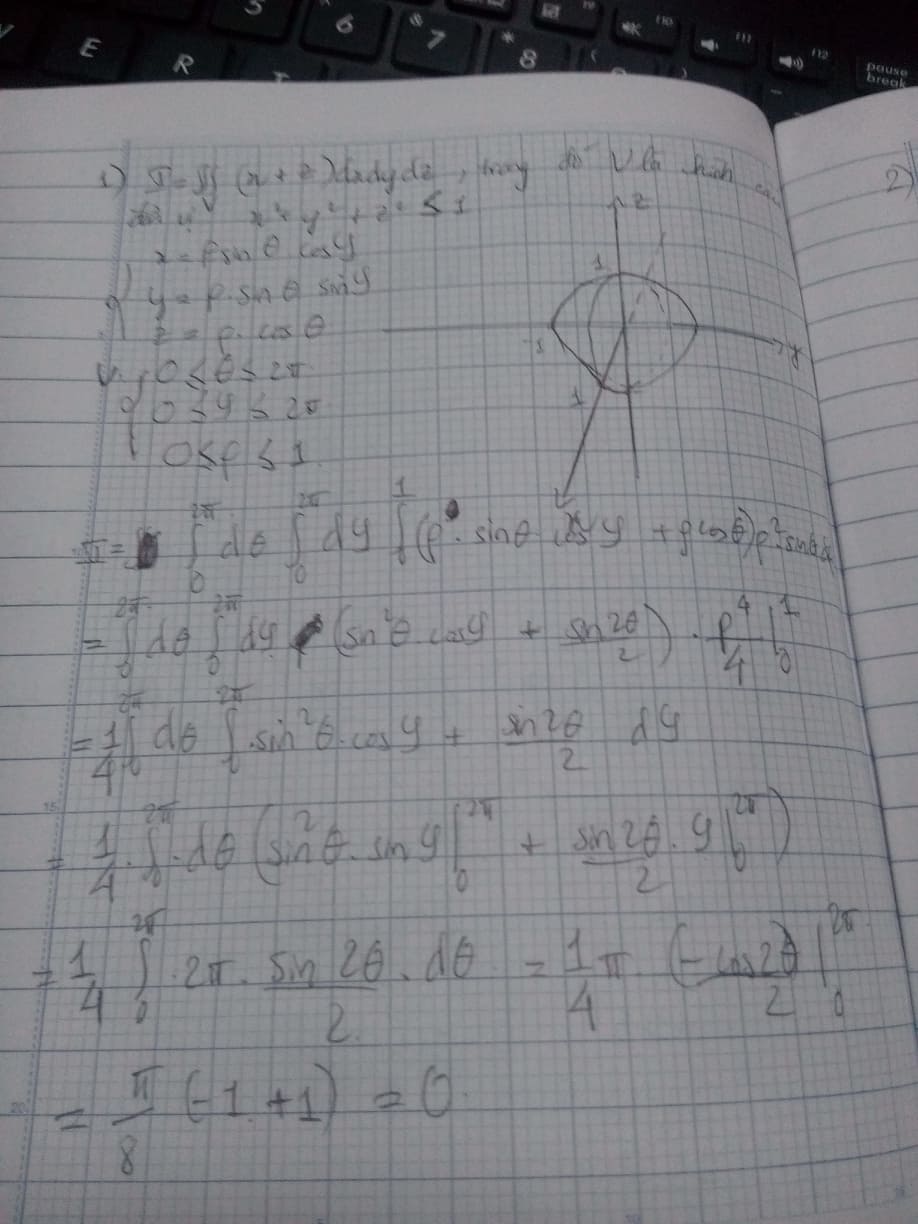 5 6 7 8
E R
pause break
1) I = ∭ (x + z) dxdydz, trong đó V là hình cầu
V x² + y² + z² ≤ 1
x = ρ sin θ cos φ
y = ρ. sin θ sin φ
z = ρ. cos θ
z
1
-1
y
1
V: 0 ≤ θ ≤ 2π
0 ≤ φ ≤ 2π
0 ≤ ρ ≤ 1
I = ∫₀^2π dθ ∫₀^2π dφ ∫₀^1 (ρ. sinθ cosφ + ρcosθ)ρ². sinθ
= ∫₀^2π dθ ∫₀^2π dφ (sin²θ cosφ + sin2θ/2) . ρ⁴/4 |₀^1
= 1/4 ∫₀^2π dθ ∫₀^2π .sin²θ.cosφ + sin2θ/2 dφ
= 1/4 . ∫₀^2π .dθ (sin²θ. sinφ |₀^2π + sin2θ/2 . φ |₀^2π)
= 1/4 ∫₀^2π .2π . sin 2θ/2 . dθ = 1/4 π (-cos2θ)/2 |₀^2π
= π/8 (-1 + 1) = 0
2)